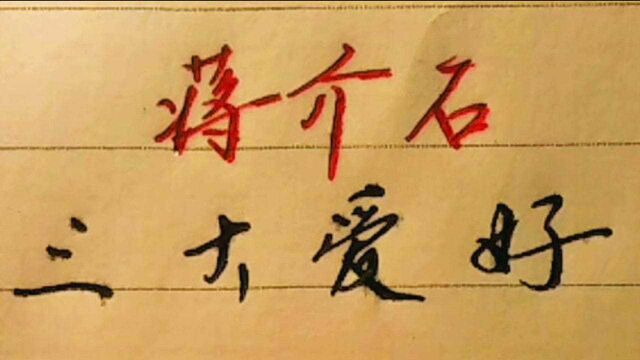 蒋介石
三大爱好